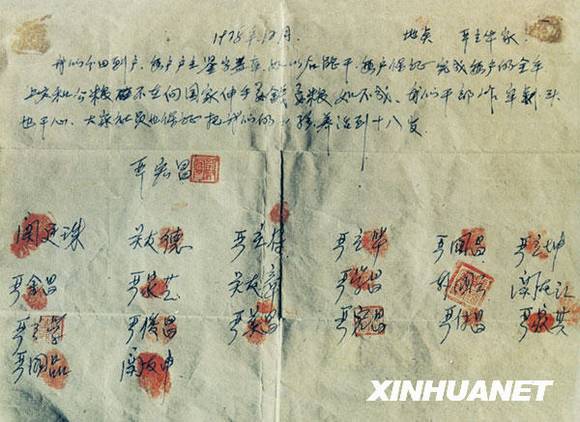 1978年12月. 地点 严立华家
我们分田到户,每户户主签字盖章,如以后能干,每户保证完成每户的全年
上交和公粮不在向国家伸手要钱要粮,如不成,我们干部作牢刹头
也干心,大家社员也保证把我们的小孩养活到十八岁.
严宏昌
关廷珠 关友德 严立符 严立华 严国昌 严立坤
严金昌 严家芝 关友章 严学昌 韩国云 关友江
严立学 严俊昌 严美昌 严宏昌 严付昌 严家其
严国品 关友申
XINHUANET